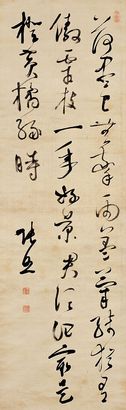 荷盡已無擎雨蓋菊殘猶有
傲霜枝一年好景君須記最是
橙黃橘綠時